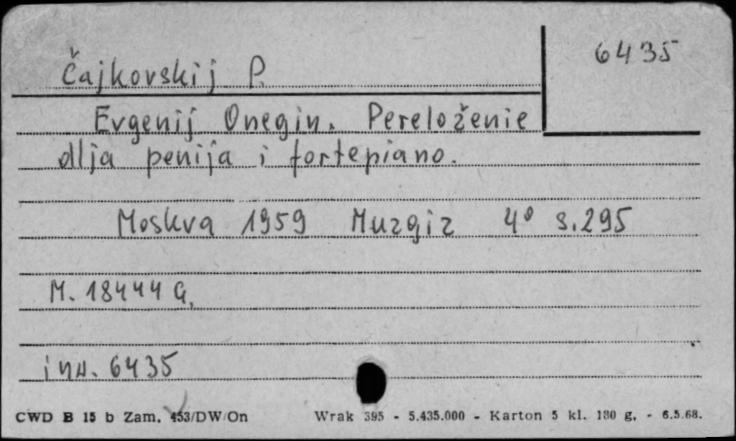 6435
Čajkovskij P.
Evgenij Onegin. Pereloženie
dlja penija i fortepiano.
Moskva 1959 Muzgiz 4° s.295
M. 18444 G.
inw. 6435
CWD B 15 b Zam. 453/DW/On Wrak 395 - 5.435.000 - Karton 5 kl. 180 g. - 6.5.68.